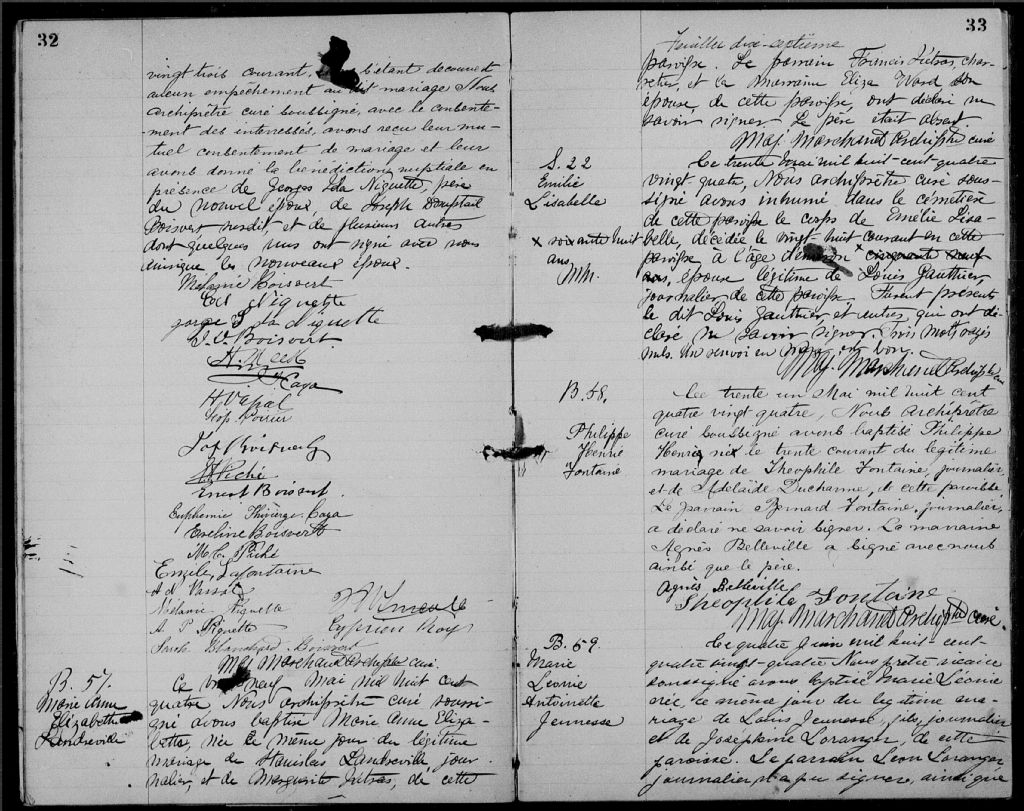 32
vingt trois courant, et ne s'étant decouvert
aucun empechement au dit mariage Nous
Archiprêtre curé soussigné, avec le consente-
ment des interressés, avons reçu leur mu-
tuel consentement de mariage et leur
avons donné la bénédiction nuptiale en
présence de Georges Niquette, père
du nouvel époux, de Joseph
Boisvert susdit, et de plusieurs autres
dont quelques uns ont signé avec nous
ainsi que les nouveaux époux.
Melanie Boisvert
Ed Niquette
Niquette
Boisvert
Caya
H Vassal
Poirier
Piché
Ernest Boisvert.
Euphemie Thivierge Caya
Eveline Boisvert
M. C. Piché
Emzile Lafontaine
Vassal
Mélanie Niquette
A. P. Niquette
Cyprien Roy
Blanchard Boisvert
Maj Marchand Archiptre curé.
B. 57.
Marie Anne
Elizabeth
Landreville
Ce vingt neuf Mai mil huit cent
quatre Nous archiprêtre curé soussi-
gné avons baptisé Marie Anne Eliza-
beth, née le même jour du légitime
mariage de Stanislas Landreville, jour-
nalier, et de Marguerite Jutras, de cette
33
Feuillet dix-septième
paroisse. Le parrain Francis Jutras, char-
retier, et la marraine Eliza Ward son
épouse de cette paroisse, ont déclaré ne
savoir signer. Le père était absent
Maj. Marchand Archiptre curé
S. 22
Emilie
Lisabelle
x soixante huit
ans
Mm.
Le trente Mai mil huit-cent quatre
vingt-quatre, Nous archiprêtre curé sous-
signé avons inhumé dans le cimetière
de cette paroisse le corps de Emélie Lisa-
belle, décédée le vingt-huit courant en cette
paroisse à l'âge d'environ x cinquante neuf
ans, épouse légitime de Louis Gauthier,
journalier de cette paroisse. Furent présents
le dit Louis Gauthier et autres qui ont dé-
claré ne savoir signer. Trois mots rayés
nuls. Un renvoi en marge est bon.
Maj. Marchand Archiptre curé
B. 58.
Philippe
Henrie
Fontaine
Le trente un Mai mil huit cent
quatre vingt quatre, Nous Archiprêtre
curé soussigné avons baptisé Philippe
Henrie né le trente courant du légitime
mariage de Théophile Fontaine, journalier,
et de Adelaïde Ducharme, de cette paroisse
Le parrain Bernard Fontaine, journalier,
a déclaré ne savoir signer. La marraine
Agnès Belleville a signé avec nous
ainsi que le père.
Agnès Belleville
Theophile Fontaine
Maj. Marchand Archiptre curé.
B. 59.
Marie
Leonie
Antoinette
Jeunesse
Le quatre Juin mil huit cent-
quatre vingt-quatre Nous prêtre vicaire
soussigné avons baptisé Marie Léonie
née ce même jour du légitime ma-
riage de Louis Jeunesse, fils, journalier
et de Joséphine Loranger, de cette
paroisse. Le parrain Léon Loranger,
journalier, n'a pu signer, ainsi que